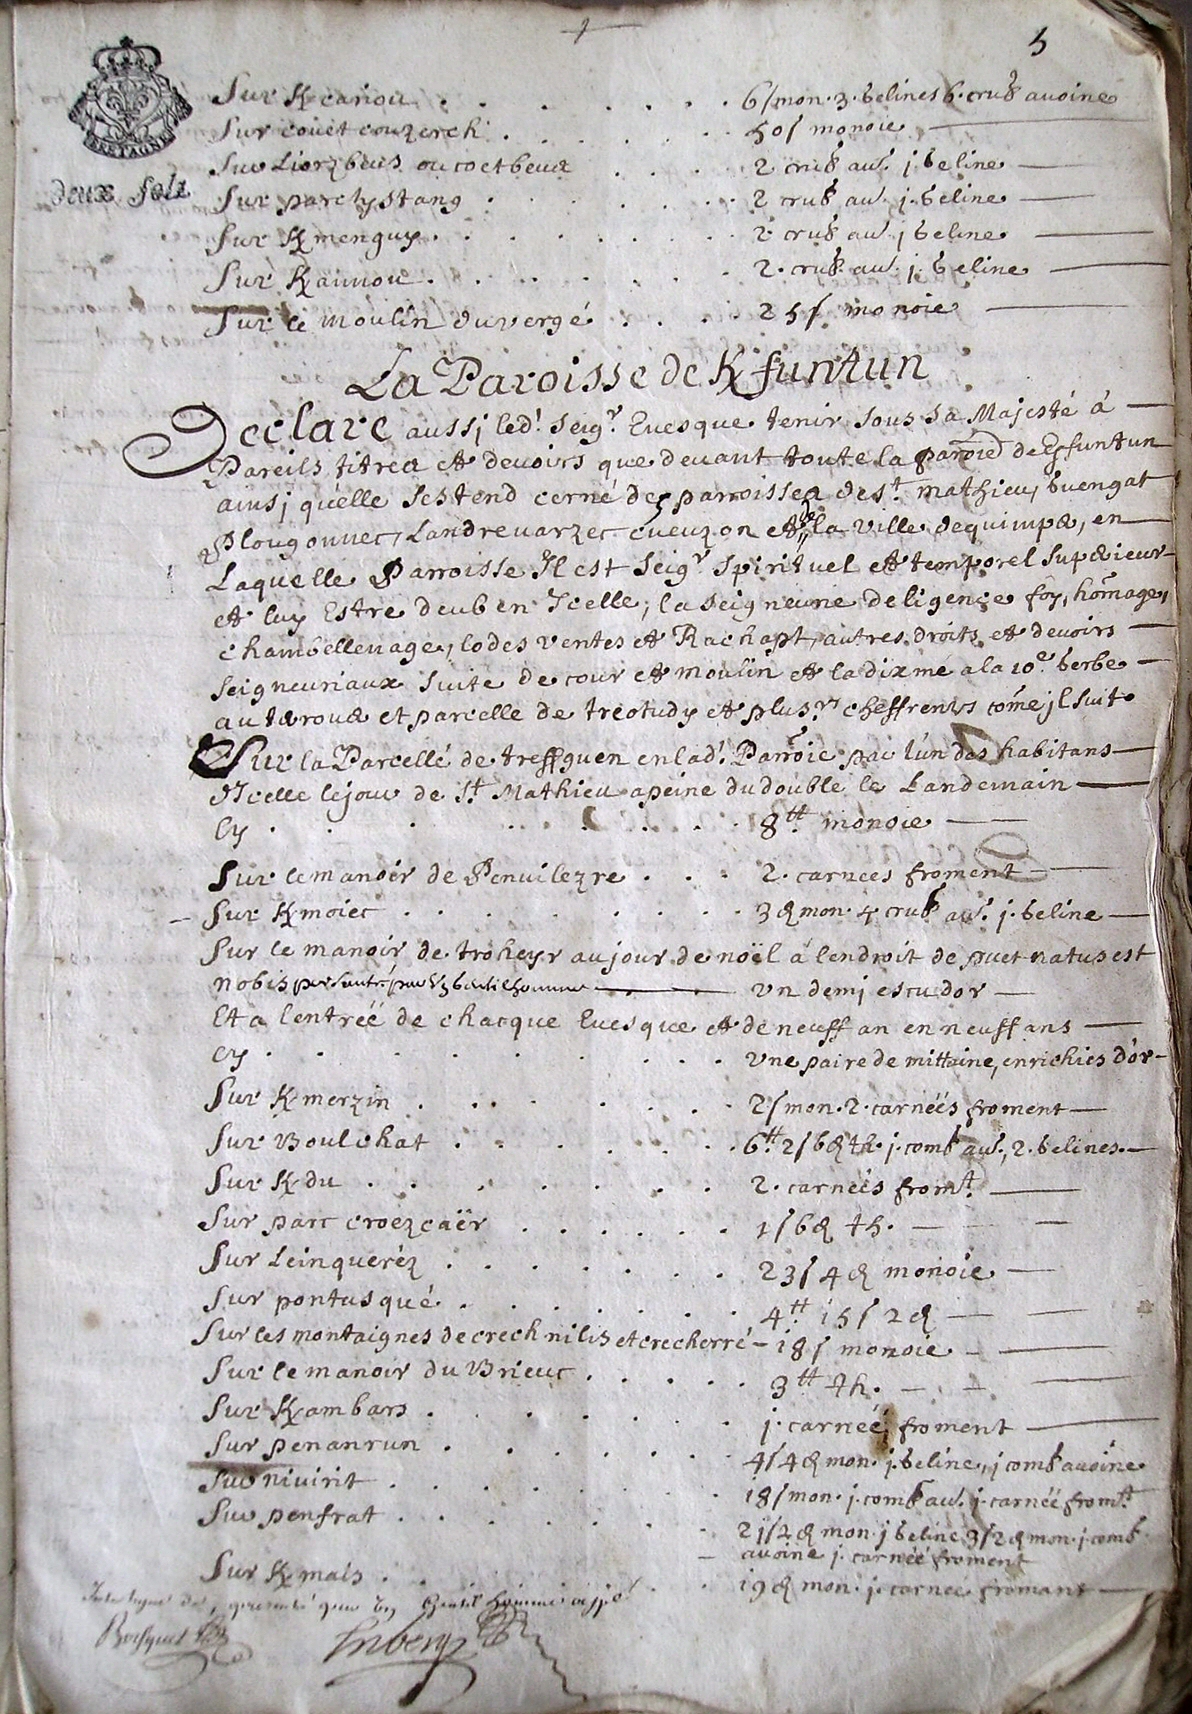 5
BRETAGNE
deux solz
Sur K/cariou . . . . . . . 6 s mon. 3. belines 6. crubl avoine
Sur couet couzerch . . . . . 50 s monoie
Sur Liorzbeus ou coetbeus . . . 2 crubl av. j beline
Sur parc ystang . . . . . . 2 crubl av. j. beline
Sur K/menguy . . . . . . . 2 crubl av. j beline
Sur K/aimou . . . . . . 2. crubl av. j. beline
Sur le moulin du vergé . . . . 25 s monoie
La Paroisse de K/funtun
Declare aussj led.t Seig.r Evesque tenir sous sa Majesté à
Pareils titres et devoirs que devant toute la paroie de K/funtun
ainsj qu'elle s'estend cerné des parroisses de s.t mathieu, buengat
Plougonnec, Landrevarzec cueuzon et de la ville de quimper, en
Laquelle Parroisse Il est Seig.r Spirituel et temporel Superieur
et luy Estre deub en Icelle, la seigneurie de ligence foy, homage,
chambellenage, lodes ventes et Rachapt, autres droits et devoirs
Seigneuriaux Suite de cour et moulin et la dixme a la 10.e berbe
au terouer et parcelle de treotudy et plus.rs cheffrents come jl suit
Sur la Parcelle de treffguen en lad.t Parroie par l'un des habitans
d'Icelle le jour de S.t Mathieu a peine du double le Landemain
Cy . . . . . . . . 8 tt monoie
Sur le manoir de Penvilezre . . . 2. carnees froment
Sur K/moiec . . . . . . . . 3 d mon. 4 crubl av. j. beline
Sur le manoir de troheyr au jour de noël à l'endroit de puer natus est
nobis presenté par un gentilhomme . . . Vn demj escu d'or
Et a l'entréé de chacque Evesque et de neuff an en neuff ans
Cy . . . . . . . . Vne paire de mittaine, enrichies d'or
Sur K/merzin . . . . . . . 2 s mon. 2. carnéés froment
Sur Boulchat . . . . . . . 6 tt 2 s 6 d th. j. comb av., 2. belines.
Sur K/du . . . . . . . . 2. carnéés from.t
Sur parc croezcaër . . . . . . 1 s 6 d th.
Sur Leinqueréz . . . . . . . 23 s 4 d monoie
Sur pontusqué . . . . . . . 4 tt 15 s 2 d
Sur les montaignes de crech nilis et crecherré – 18 s monoie
Sur le manoir du Brieuc . . . . . 3 tt th.
Sur K/ambars . . . . . . . j. carnéé froment
Sur penanrun . . . . . . . 4 s 4 d mon. j. beline, j comb avoine
Sur nivirit . . . . . . . . 18 s mon. j. comb av. j. carnéé from.t
Sur penfrat . . . . . . . . 21 s 2 d mon. j beline 3 s 2 d mon. j. comb
avoine j. carnéé froment
Sur K/mais . . . . . . . . 19 d mon. j. carnee froment
Interligne de, presenté par un Gentil homme